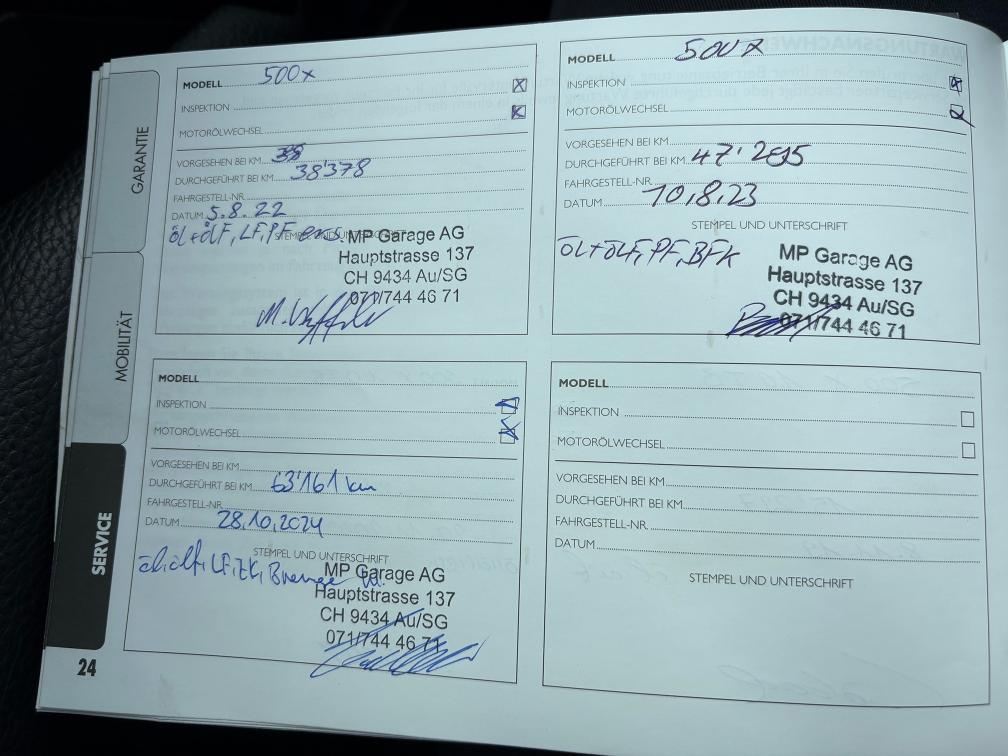 GARANTIE
MOBILITÄT
SERVICE
24
MODELL 500x
INSPEKTION
MOTORÖLWECHSEL
VORGESEHEN BEI KM
DURCHGEFÜHRT BEI KM 38'378
FAHRGESTELL-NR.
DATUM 5.8.22
STEMPEL UND UNTERSCHRIFT
ÖL+ÖLF, LF, PF ers.
MP Garage AG
Hauptstrasse 137
CH 9434 Au/SG
071/744 46 71
MODELL 500X
INSPEKTION
MOTORÖLWECHSEL
VORGESEHEN BEI KM
DURCHGEFÜHRT BEI KM 47'295
FAHRGESTELL-NR.
DATUM 10,8,23
STEMPEL UND UNTERSCHRIFT
ÖL+ÖLF, PF, BFK
MP Garage AG
Hauptstrasse 137
CH 9434 Au/SG
071/744 46 71
MODELL
INSPEKTION
MOTORÖLWECHSEL
VORGESEHEN BEI KM
DURCHGEFÜHRT BEI KM 63'161 km
FAHRGESTELL-NR.
DATUM 28,10,2024
STEMPEL UND UNTERSCHRIFT
MP Garage AG
Hauptstrasse 137
CH 9434 Au/SG
071/744 46 71
MODELL
INSPEKTION
MOTORÖLWECHSEL
VORGESEHEN BEI KM
DURCHGEFÜHRT BEI KM
FAHRGESTELL-NR.
DATUM
STEMPEL UND UNTERSCHRIFT